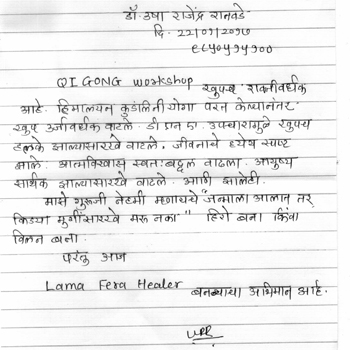 डॉ. उषा राजेंद्र रानवडे
दि. 22/01/2017
९८५०५१५१००
QI GONG Workshop खुपच शक्तीवर्धक
आहे. हिमालयन कुंडलिनी योगा परत केल्यानंतर
खुप उर्जावर्धक वाटले. डी एन ए. उपचारामुळे खुपच
हलके झाल्यासारखे वाटले. जीवनाचे ध्येय स्पष्ट
झाले. आत्मविश्वास स्वतःबद्दल वाढला. आयुष्य
सार्थक झाल्यासारखे वाटले. आणि झालेही.
माझे गुरूजी नेहमी म्हणायचे "जन्माला आलात तर
किड्या मुंगीसारखे मरू नका" हिरो बना किंवा
विलन बना.
परंतु आज
Lama Fera Healer बनल्याचा अभिमान आहे.